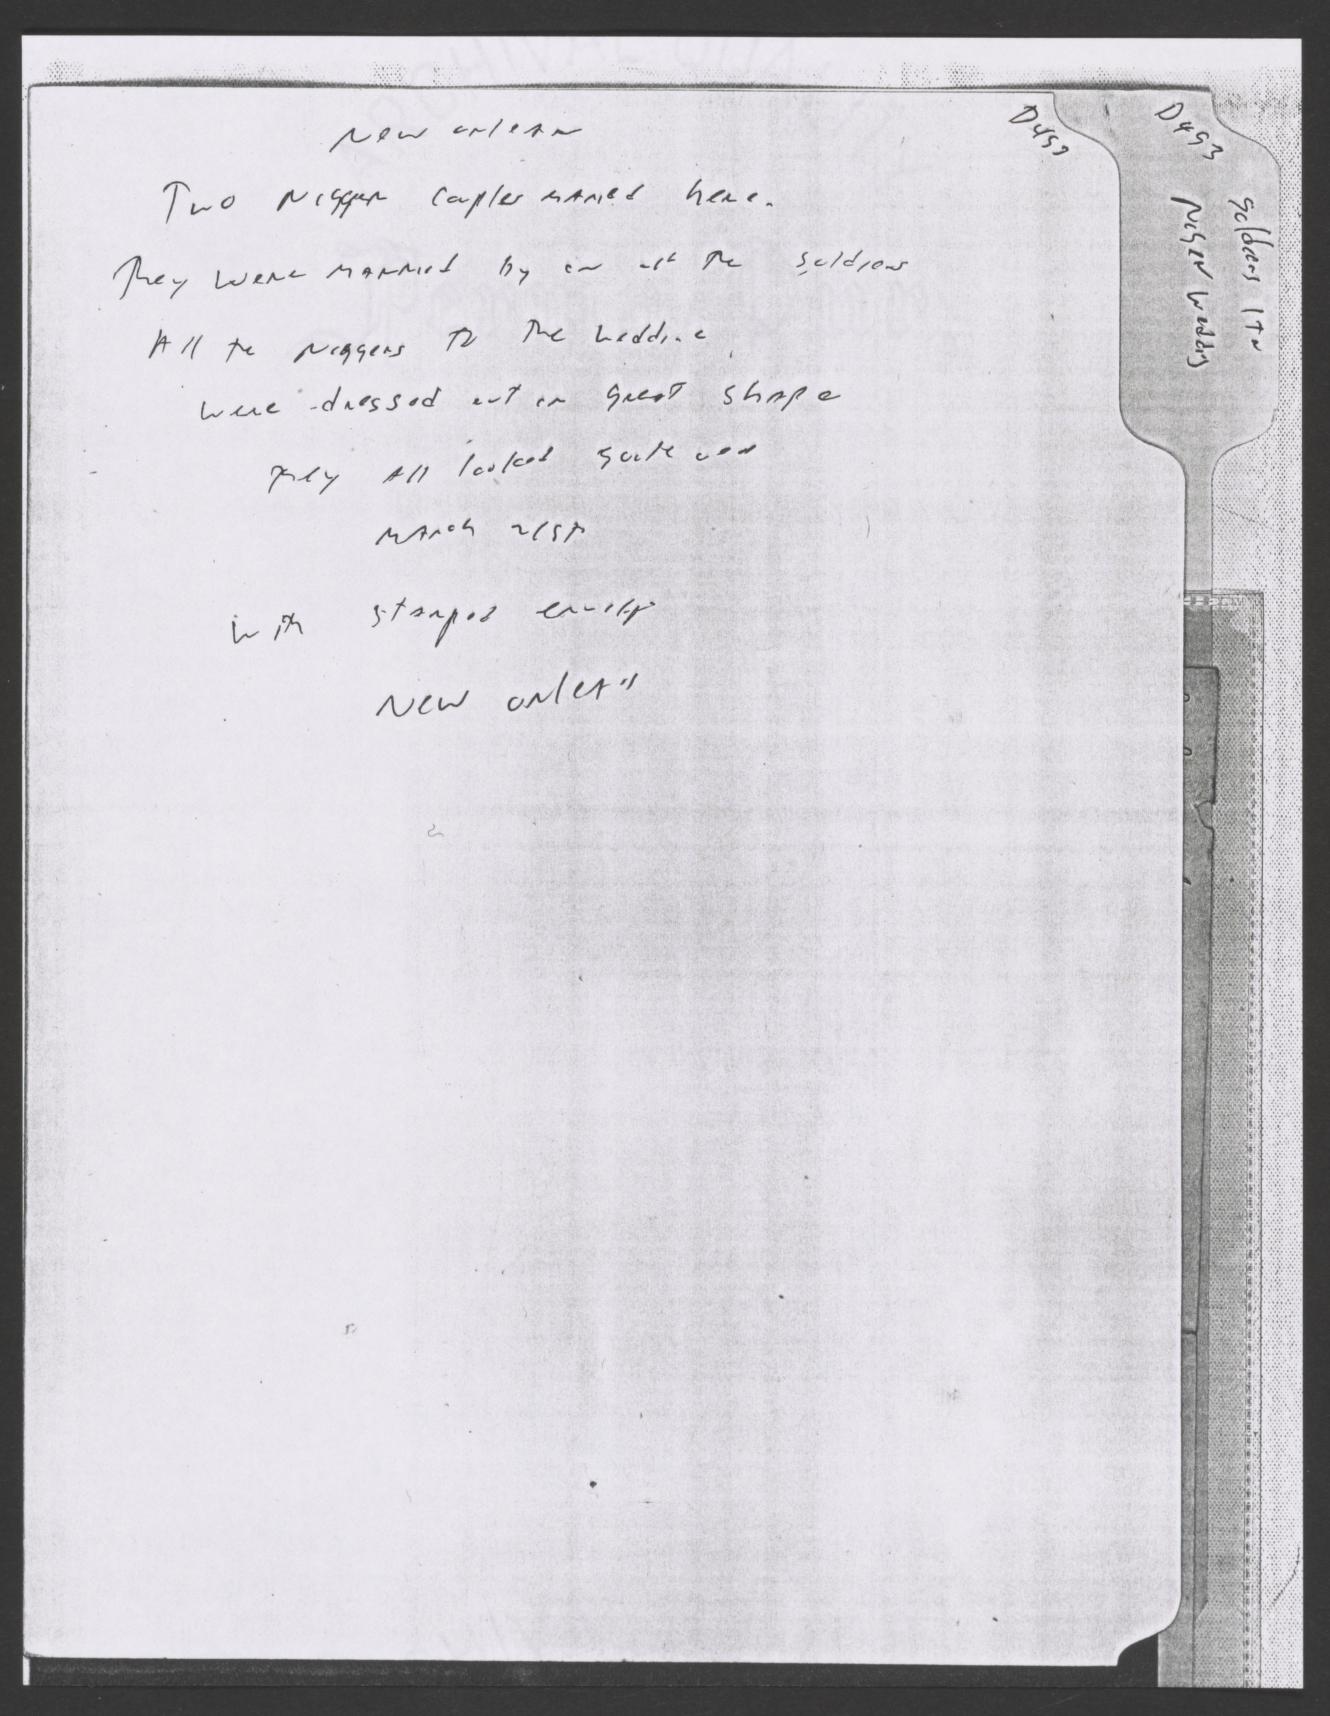 New orleans
Two nigger couples married here.
They were married by on of the soldiers
All the niggers to the wedding
were dressed out in great shape
They all looked quite
March 21st
with stamped envelope
New orleans
D493
D493
soldiers
Niger Wedding